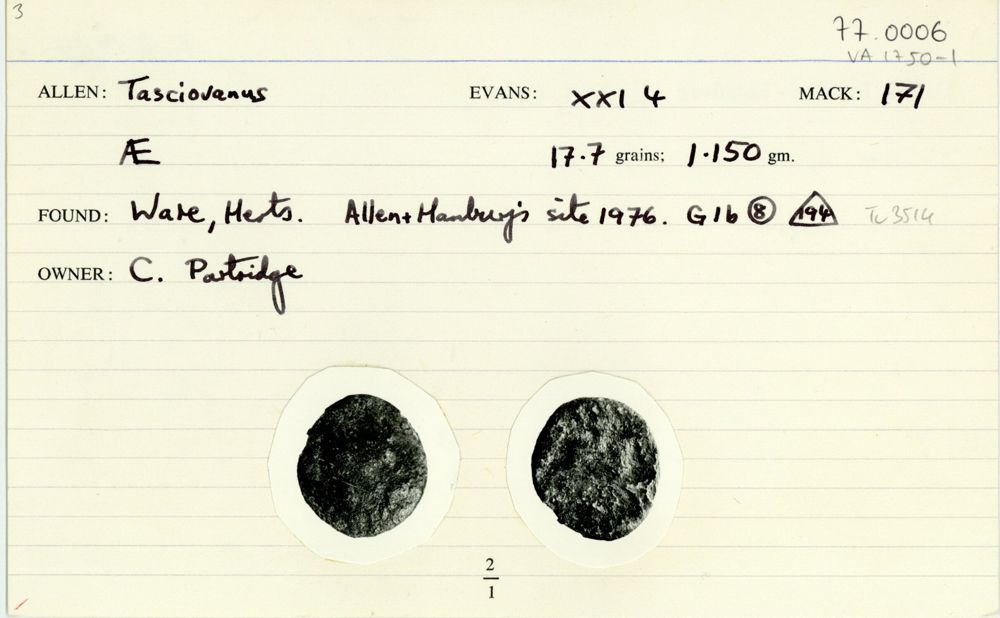 3
77.0006
VA 1750-1
ALLEN: Tasciovanus EVANS: XXI 4 MACK: 171
Æ 17.7 grains; 1.150 gm.
FOUND: Ware, Herts. Allen+Hanbury's site 1976. G1b 8 194 TL 3514
OWNER: C. Partridge
2
1